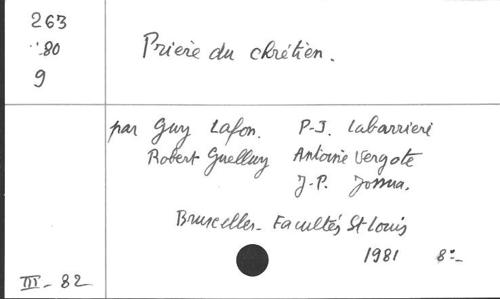 263
∴80
9
Prière du chrétien.
par Guy Lafon. P.-J. Labarrière
Robert Guelluy Antoine Vergote
J.-P. Jossua.
Bruxelles - Facultés St Louis
1981 8°-
III - 82